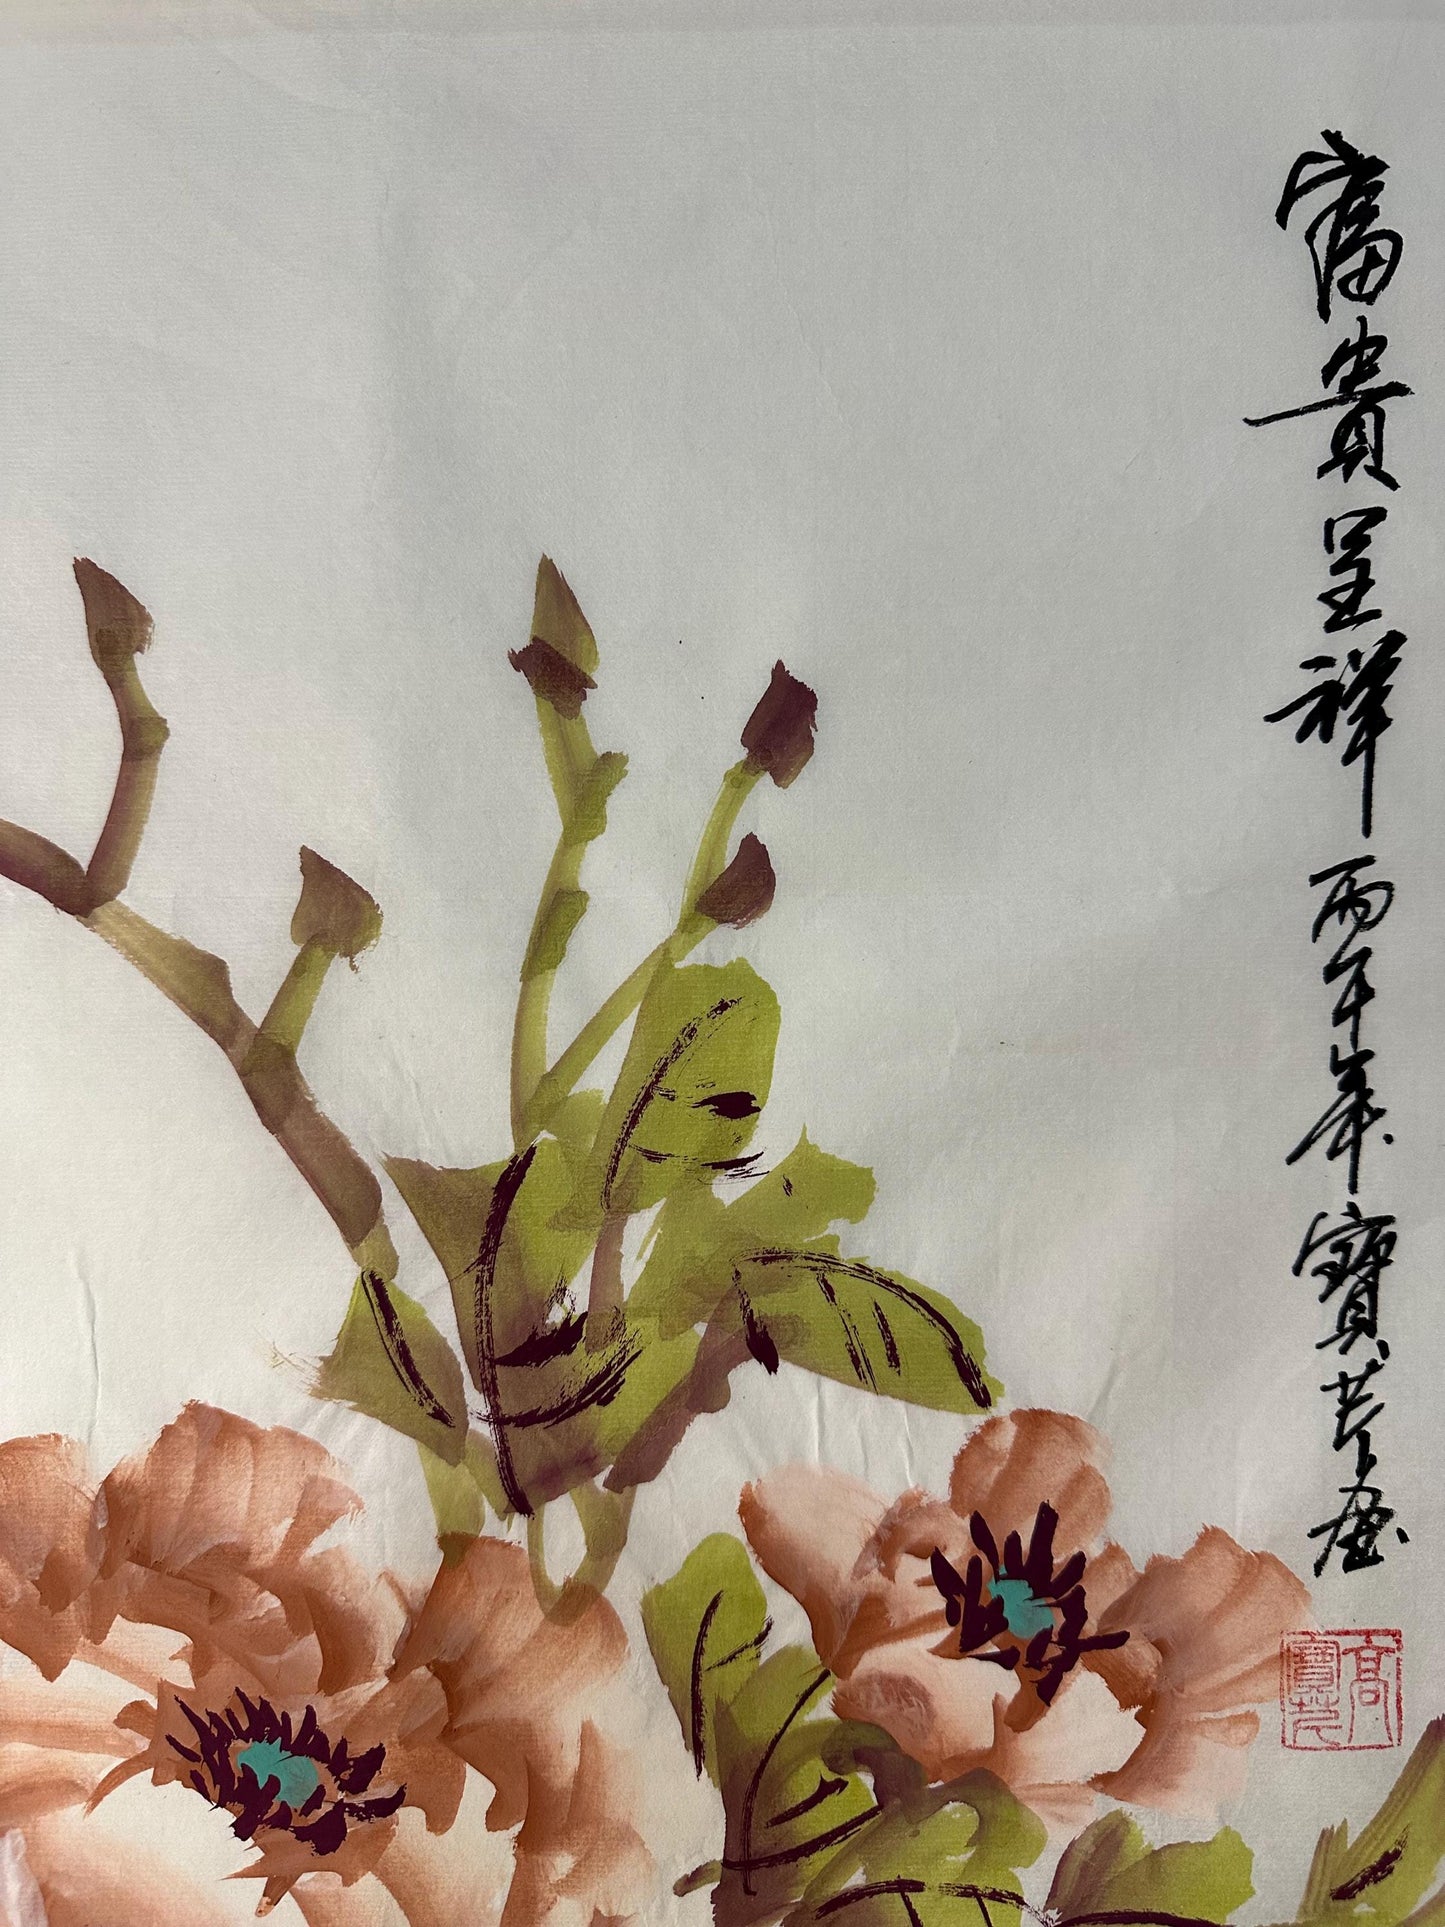 富貴呈祥 丙午年 寶芹畫
高寶芹